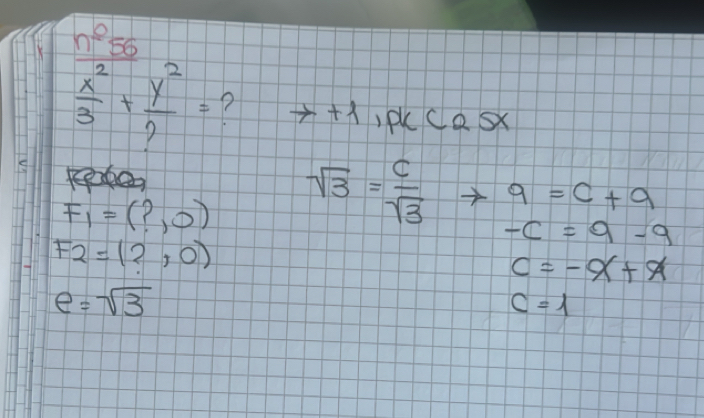 n° 56
x²/3 + y²/? = ? → +1, pk c a sx
F1 = (?, 0)
F2 = (?, 0)
e = √3
√3 = c/√3 → 9 = c + 9
-c = 9 - 9
c = -9 + 9
c = 1